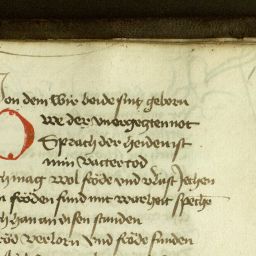 on dem wir beide sint geborn
O we der vnergegten not
Sprach der heiden ist
min vatter tod
ch mag wol fröde vnd vlust jechen
n fröden sund mit warheit spech
ch han an disen stunden
röd verlorn vnd fröde funden